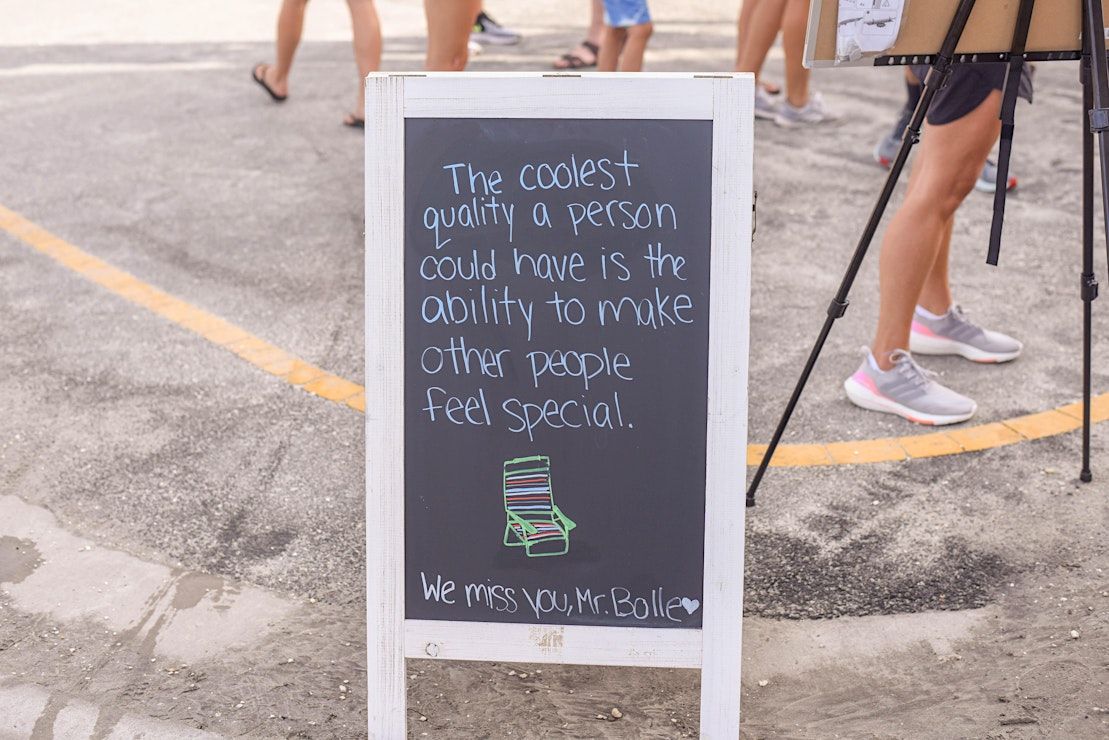 The coolest
quality a person
could have is the
ability to make
other people
feel special.
We miss you, Mr. Bolle